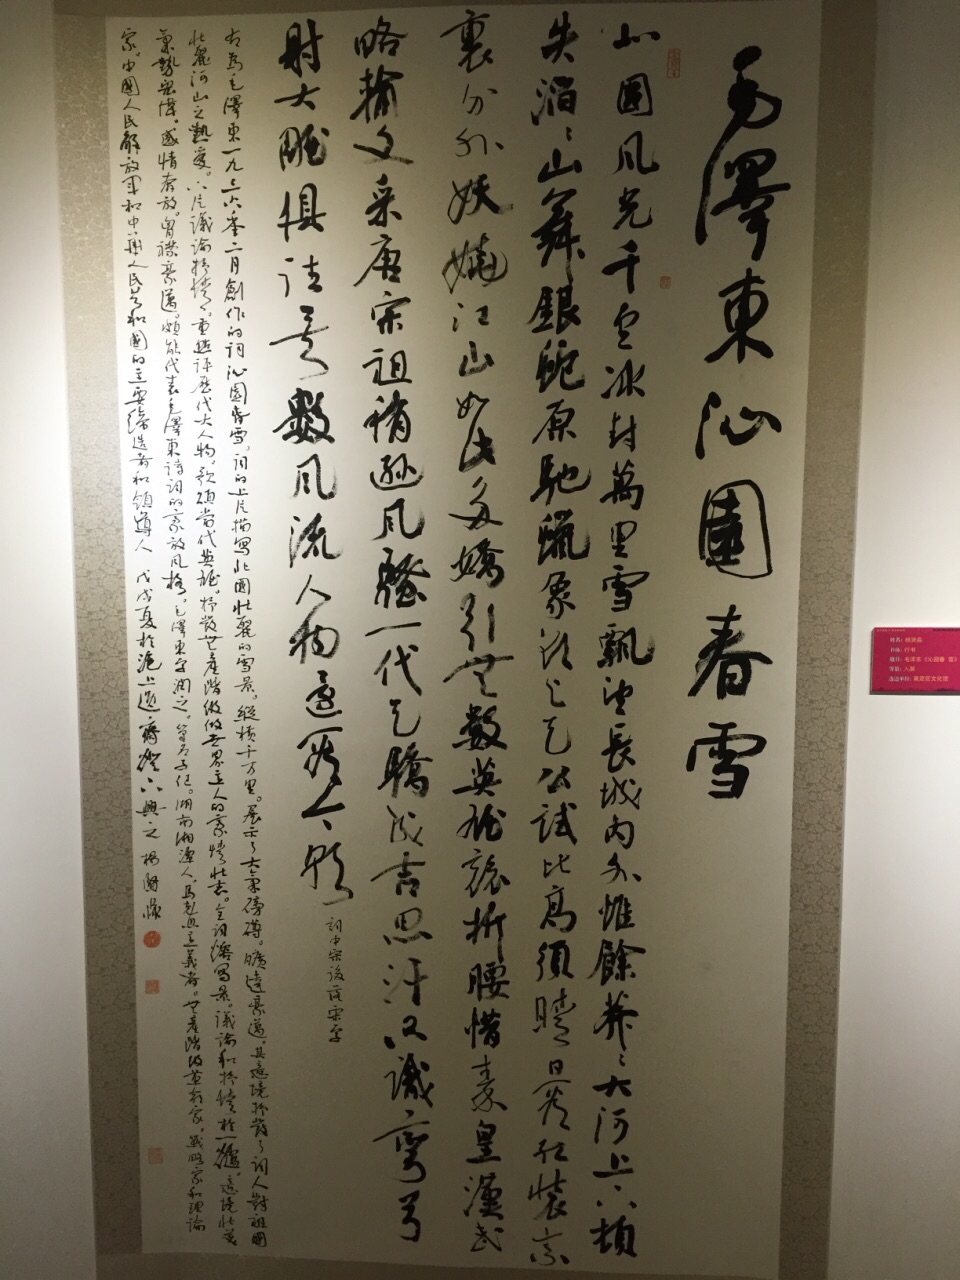 毛澤東沁園春雪
北國風光千里冰封萬里雪飄望長城內外惟餘莽〻大河上下頓
失滔〻山舞銀蛇原馳蠟象欲與天公試比高須晴日看紅裝素
裹分外妖嬈江山如此多嬌引無數英雄競折腰惜秦皇漢武
略輸文采唐宗祖稍遜風騷一代天驕成吉思汗只識彎弓
射大雕俱往矣數風流人物還看今朝
詞中宗後落宋字
右為毛澤東一九三六年二月創作的詞沁園春雪。詞的上片描寫北國壯麗的雪景，縱橫千万里。展示了大氣磅礴。曠達豪邁。其意境抒發了詞人對祖國
壯麗河山之熱愛。下片議論抒情。重點評歷代大人物，歌頌當代英雄，抒發無產階級做世界主人的豪情壯志。全詞熔寫景。議論和抒情於一爐，意境壯美
氣勢恢偉。感情奔放。胸襟豪邁。頗能代表毛澤東詩詞的豪放風格。毛澤東字潤之。筆名子任。湖南湘潭人，馬克思主義者。無產階級革命家，戰略家和理論
家。中國人民解放軍和中華人民共和國的主要締造者和領導人 戊戌夏於滬上逸齋燈下興之
姓名：
书体：行书
题目：毛泽东《沁园春 雪》